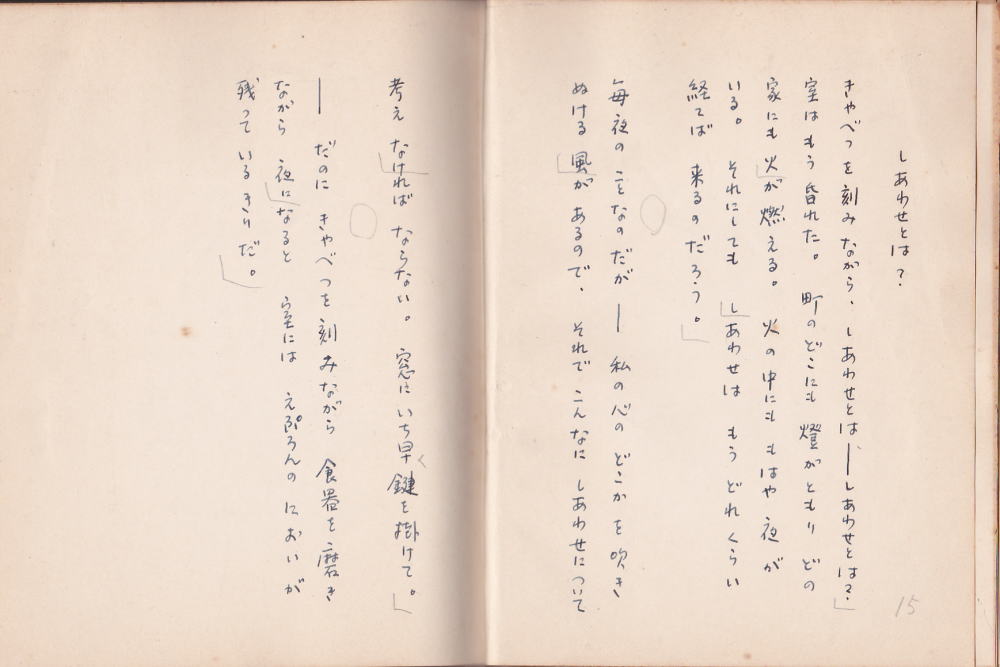 しあわせとは?
きゃべつを刻みながら、しあわせとは――しあわせとは?
室はもう昏れた。 町のどこにも燈がともり どの
家にも火が燃える。 火の中にも もはや夜が
いる。 それにしても しあわせは もうどれくらい
経てば 来るのだろう。
毎夜のことなのだが―― 私の心の どこかを吹き
ぬける風が あるので、 それで こんなに しあわせについて
考え なければ ならない。 窓にいち早く鍵を掛けて。
―― だのに きゃべつを刻みながら 食器を磨き
ながら 夜になると 室には えぷろんの においが
残って いるきりだ。
15